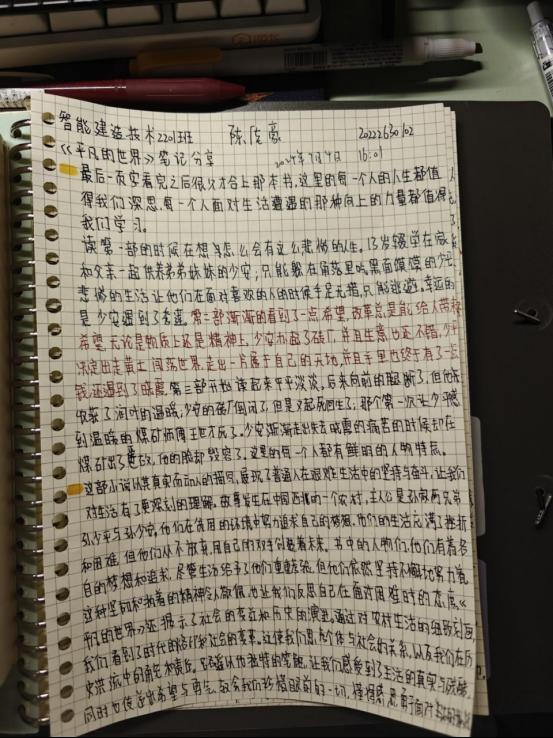 智能建造技术2201班 陈 豪 2022630102
《平凡的世界》笔记分享 16:01
最后一页实看完之后很久才合上那本书,这里的每一个人的人生都值
得我们深思,每一个人面对生活遭遇的那种向上的力量都值得
我们学习。
读第一部的时候在想为怎么会有这么悲惨的人生。13岁辍学在家
和父亲一起供养弟弟妹妹的少安,只能躲在角落里吃黑面馍馍的少平
悲惨的生活让他们在面对喜欢的人的时候手足无措,只能逃避,幸运的
是少安遇到了秀莲。第二部渐渐的看到了一点希望,改革总是能给人带来
希望,无论是物质上还是精神上,少安办起了砖厂,并且生意也还不错,少平
决定出走黄土,闯荡世界,走出一片属于自己的天地,并且手里也终于有了一点
钱,还遇到了晓霞。第三部开始读起来平平淡淡,后来向前的腿断了,但他
收获了润叶的温暖,少安的砖厂倒闭了,但是又起死回生了,那个第一次让少平感
到温暖的煤矿师傅王世才死了。少安渐渐走出失去晓霞的病苦的时候却在
煤矿出了事故,他的脸却毁容了,这里的每一个人都有鲜明的人物特点。
这部小说以其真实而动人的描写,展现了普通人在艰难生活中的坚持与奋斗,让我们
对生活有了更深刻的理解。故事发生在中国西北的一个农村,主人公是孙家两兄弟
孙少平与孙少安,他们在贫困的环境中努力追求自己的梦想。他们的生活充满了挫折
和困难,但他们从不放弃,用自己的双手创造着未来。书中的人物们,他们有着各
自的梦想和追求,尽管生活给予了他们重重考验,但他们依然坚持不懈地努力着
这种坚韧和执着的精神令人敬佩,也让我们反思自己在面对困难时的态度。《
平凡的世界》还揭示了社会的变迁和历史的演进。通过对农村生活的细致刻画
我们看到了时代的烙印和社会的变革。这使我们思考个体与社会的关系,以及我们在历
史洪流中的角色和责任。路遥以他独特的笔触,让我们感受到了生活的真实与
同时也传递出希望与勇气。教会我们珍惜眼前的一切,懂得感恩,勇于面对